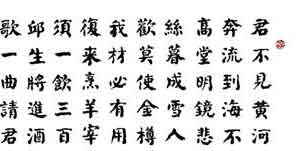 君不見黃河
奔流到海不
高堂明鏡悲
絲暮成雪人
歡莫使金樽
我材必有用
復來烹羊宰
須一飲三百
邱生將進酒
歌一曲請君